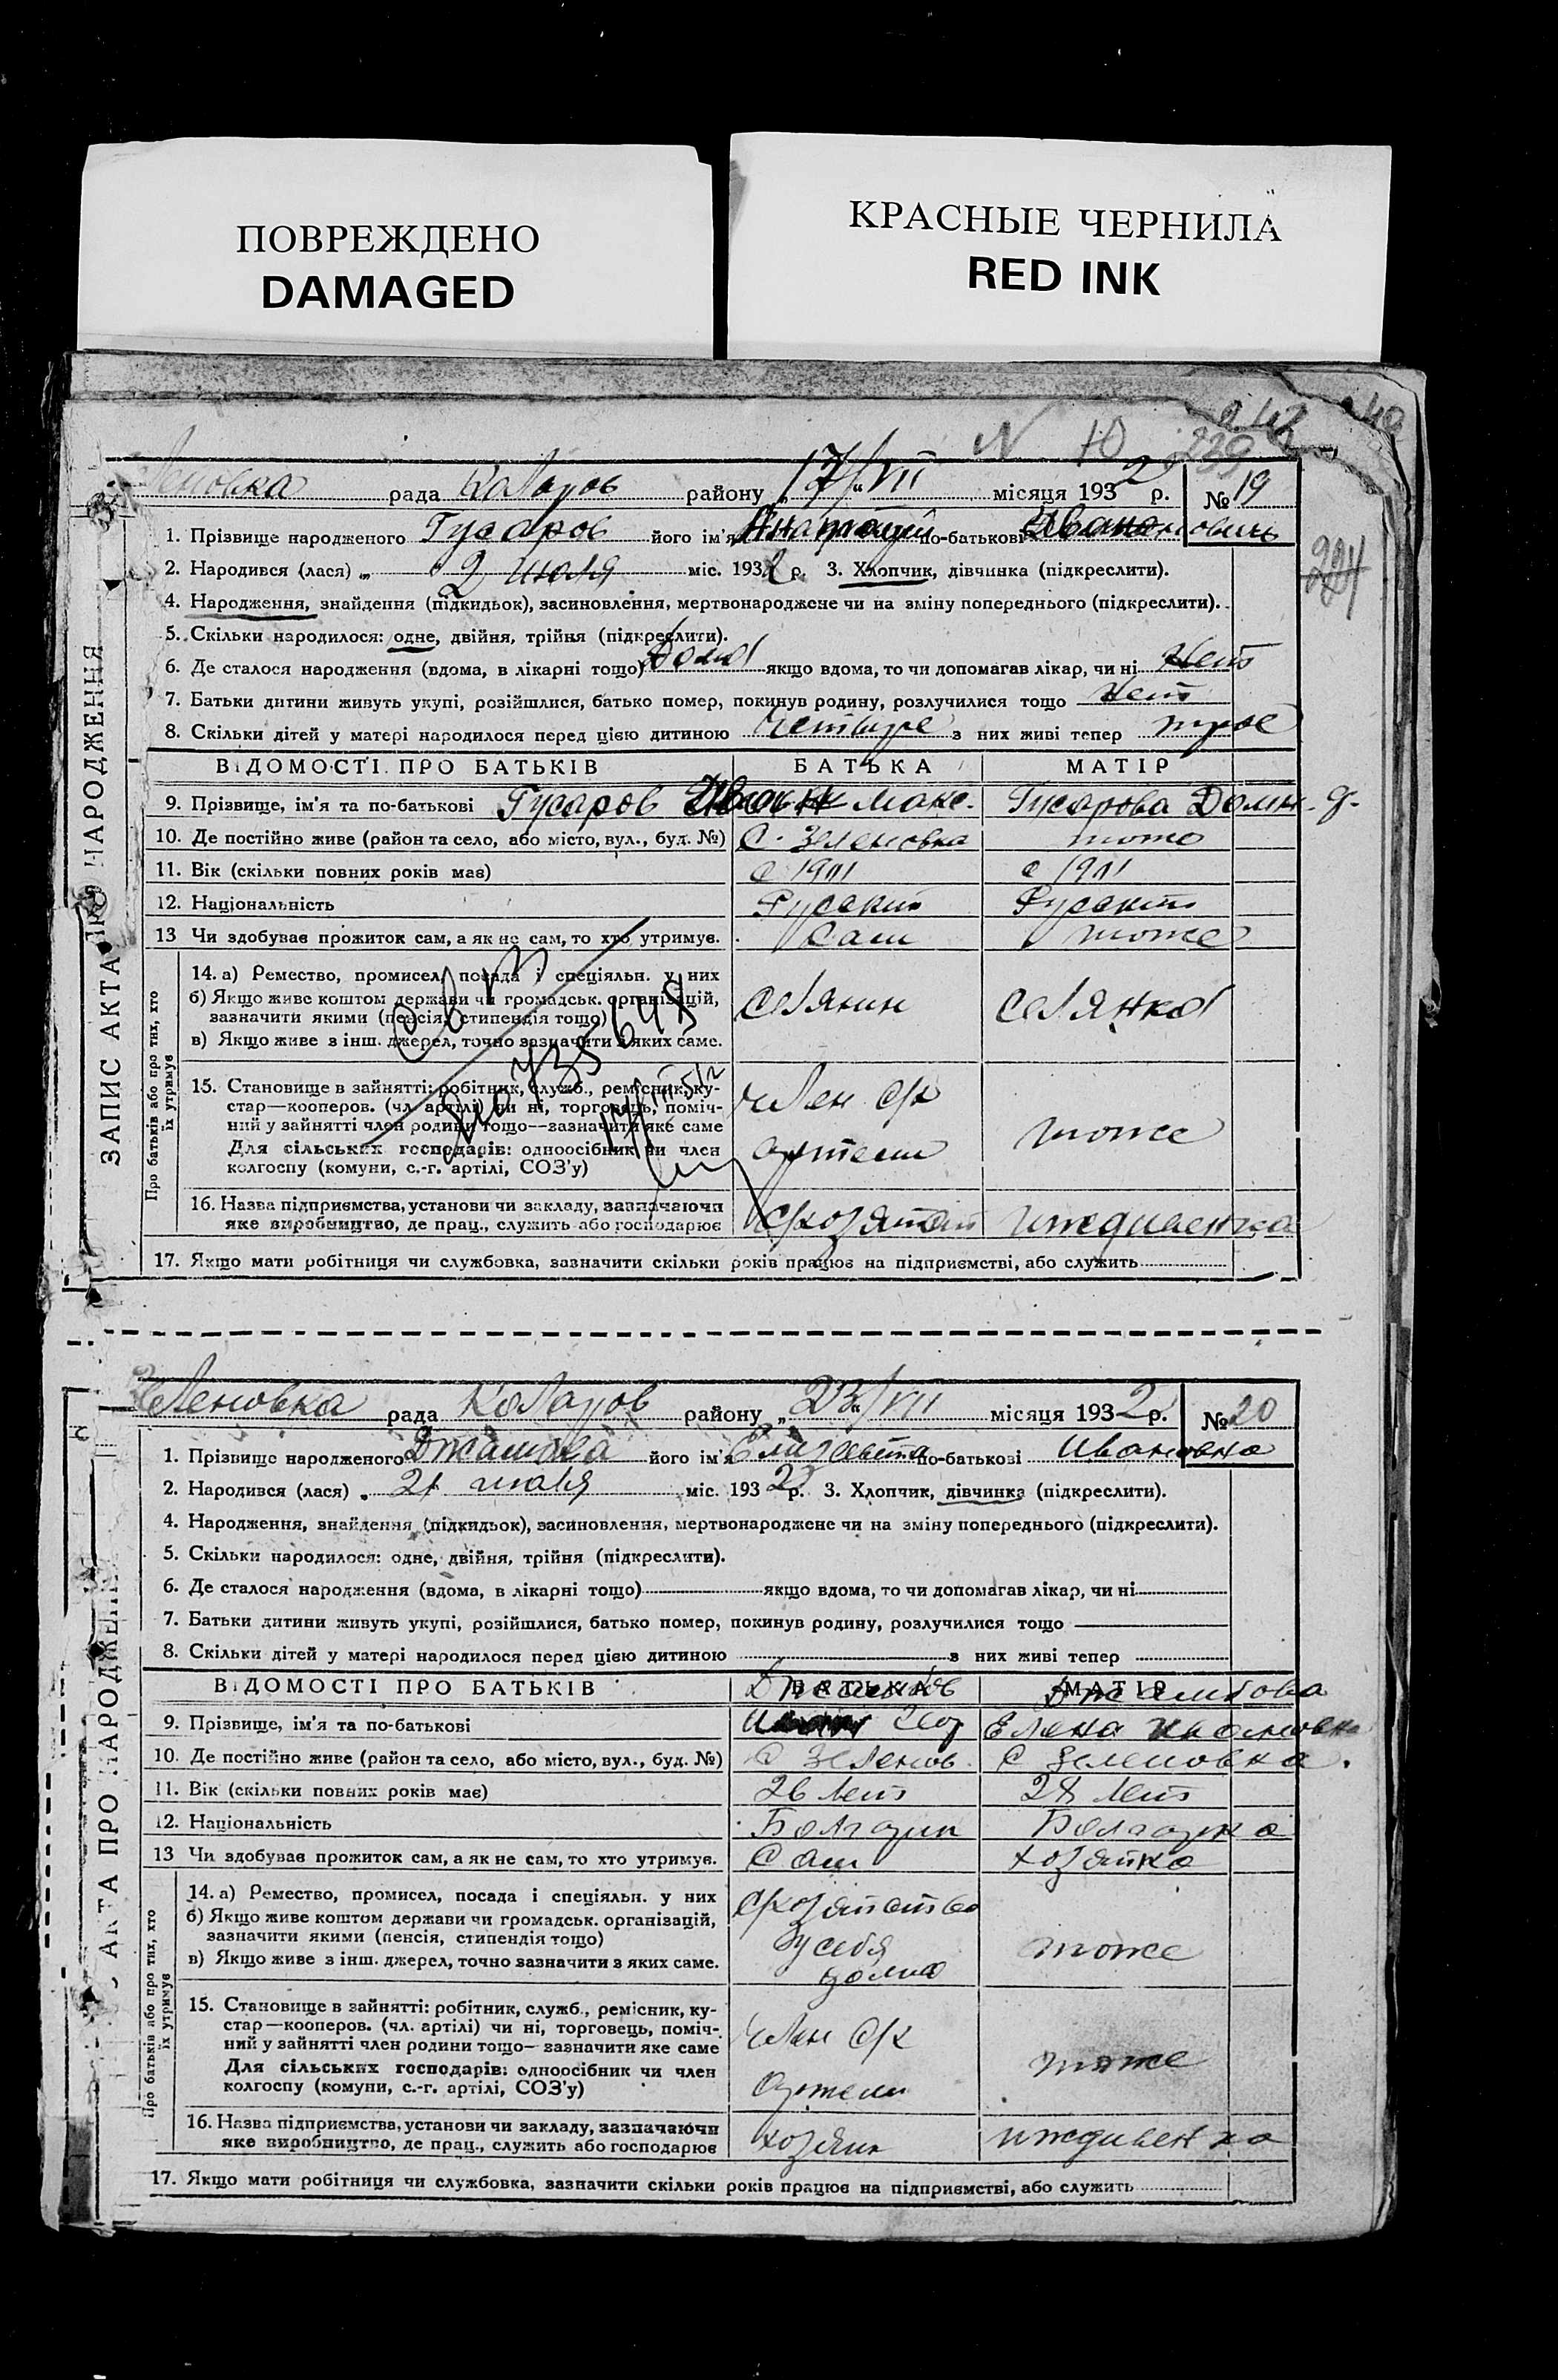 ПОВРЕЖДЕНО
DAMAGED
КРАСНЫЕ ЧЕРНИЛА
RED INK
N 10 239
224
ЗАПИС АКТА ПРО НАРОДЖЕННЯ
леновка рада Коларов району „17/VII" місяця 1932 р. № 19
1. Прізвище народженого Гусаров його ім'я Анатолий по-батькові Иванович
2. Народився (лася) „ 2 июля міс. 1932 р. 3. Хлопчик, дівчинка (підкреслити).
4. Народження, знайдення (підкидьок), засиновлення, мертвонароджене чи на зміну попереднього (підкреслити).
5. Скільки народилося: одне, двійня, трійня (підкреслити).
6. Де сталося народження (вдома, в лікарні тощо) Дома якщо вдома, то чи допомагав лікар, чи ні Нет
7. Батьки дитини живуть укупі, розійшлися, батько помер, покинув родину, розлучилися тощо Нет
8. Скільки дітей у матері народилося перед цією дитиною Четыре з них живі тепер трое
ВІДОМОСТІ ПРО БАТЬКІВ БАТЬКА МАТІР
9. Прізвище, ім'я та по-батькові Гусаров Иван Макс. Гусарова Домн. Ф.
10. Де постійно живе (район та село, або місто, вул., буд. №) С. Зеленовка тоже
11. Вік (скільки повних років має) с 1901 с 1901
12. Національність Руский Руский
13 Чи здобуває прожиток сам, а як не сам, то хто утримує. Сам тоже
Про батьків або про тих, хто їх утримує
14. а) Ремество, промисел, посада і спеціяльн. у них
б) Якщо живе коштом держави чи громадськ. організацій,
зазначити якими (пенсія, стипендія тощо) Селянин Селянка
в) Якщо живе з інш. джерел, точно зазначити з яких саме.
15. Становище в зайнятті: робітник, служб., ремісник, ку-
стар—кооперов. (чл. артілі) чи ні, торговець, поміч- член с/х
ний у зайнятті член родини тощо—зазначити яке саме тоже
Для сільських господарів: одноосібник чи член артели
колгоспу (комуни, с.-г. артілі, СОЗ'у)
16. Назва підприємства, установи чи закладу, зазначаючи
яке виробництво, де прац., служить або господарює иждивенка
17. Якщо мати робітниця чи службовка, зазначити скільки років працює на підприємстві, або служить
АКТА ПРО НАРОДЖЕНН
Зеленовка рада Коларов району „23/VII" місяця 1932 р. № 20
1. Прізвище народженого його ім'я Елизавета по-батькові Ивановна
2. Народився (лася) „ 21 июля міс. 1932 р. 3. Хлопчик, дівчинка (підкреслити).
4. Народження, знайдення (підкидьок), засиновлення, мертвонароджене чи на зміну попереднього (підкреслити).
5. Скільки народилося: одне, двійня, трійня (підкреслити).
6. Де сталося народження (вдома, в лікарні тощо) якщо вдома, то чи допомагав лікар, чи ні
7. Батьки дитини живуть укупі, розійшлися, батько помер, покинув родину, розлучилися тощо
8. Скільки дітей у матері народилося перед цією дитиною з них живі тепер
ВІДОМОСТІ ПРО БАТЬКІВ БАТЬКА МАТІР
9. Прізвище, ім'я та по-батькові Иван Елена Ивановна
10. Де постійно живе (район та село, або місто, вул., буд. №) С Зеленов. С Зеленовка.
11. Вік (скільки повних років має) 26 лет 28 лет
12. Національність Болгарин Болгарка
13 Чи здобуває прожиток сам, а як не сам, то хто утримує. Сам хозяйка
Про батьків або про тих, хто їх утримує
14. а) Ремество, промисел, посада і спеціяльн. у них
б) Якщо живе коштом держави чи громадськ. організацій,
зазначити якими (пенсія, стипендія тощо) у себя тоже
в) Якщо живе з інш. джерел, точно зазначити з яких саме. дома
15. Становище в зайнятті: робітник, служб., ремісник, ку-
стар—кооперов. (чл. артілі) чи ні, торговець, поміч- член с/х
ний у зайнятті член родини тощо—зазначити яке саме тоже
Для сільських господарів: одноосібник чи член
колгоспу (комуни, с.-г. артілі, СОЗ'у) артели
16. Назва підприємства, установи чи закладу, зазначаючи
яке виробництво, де прац., служить або господарює хозяин иждивенка
17. Якщо мати робітниця чи службовка, зазначити скільки років працює на підприємстві, або служить